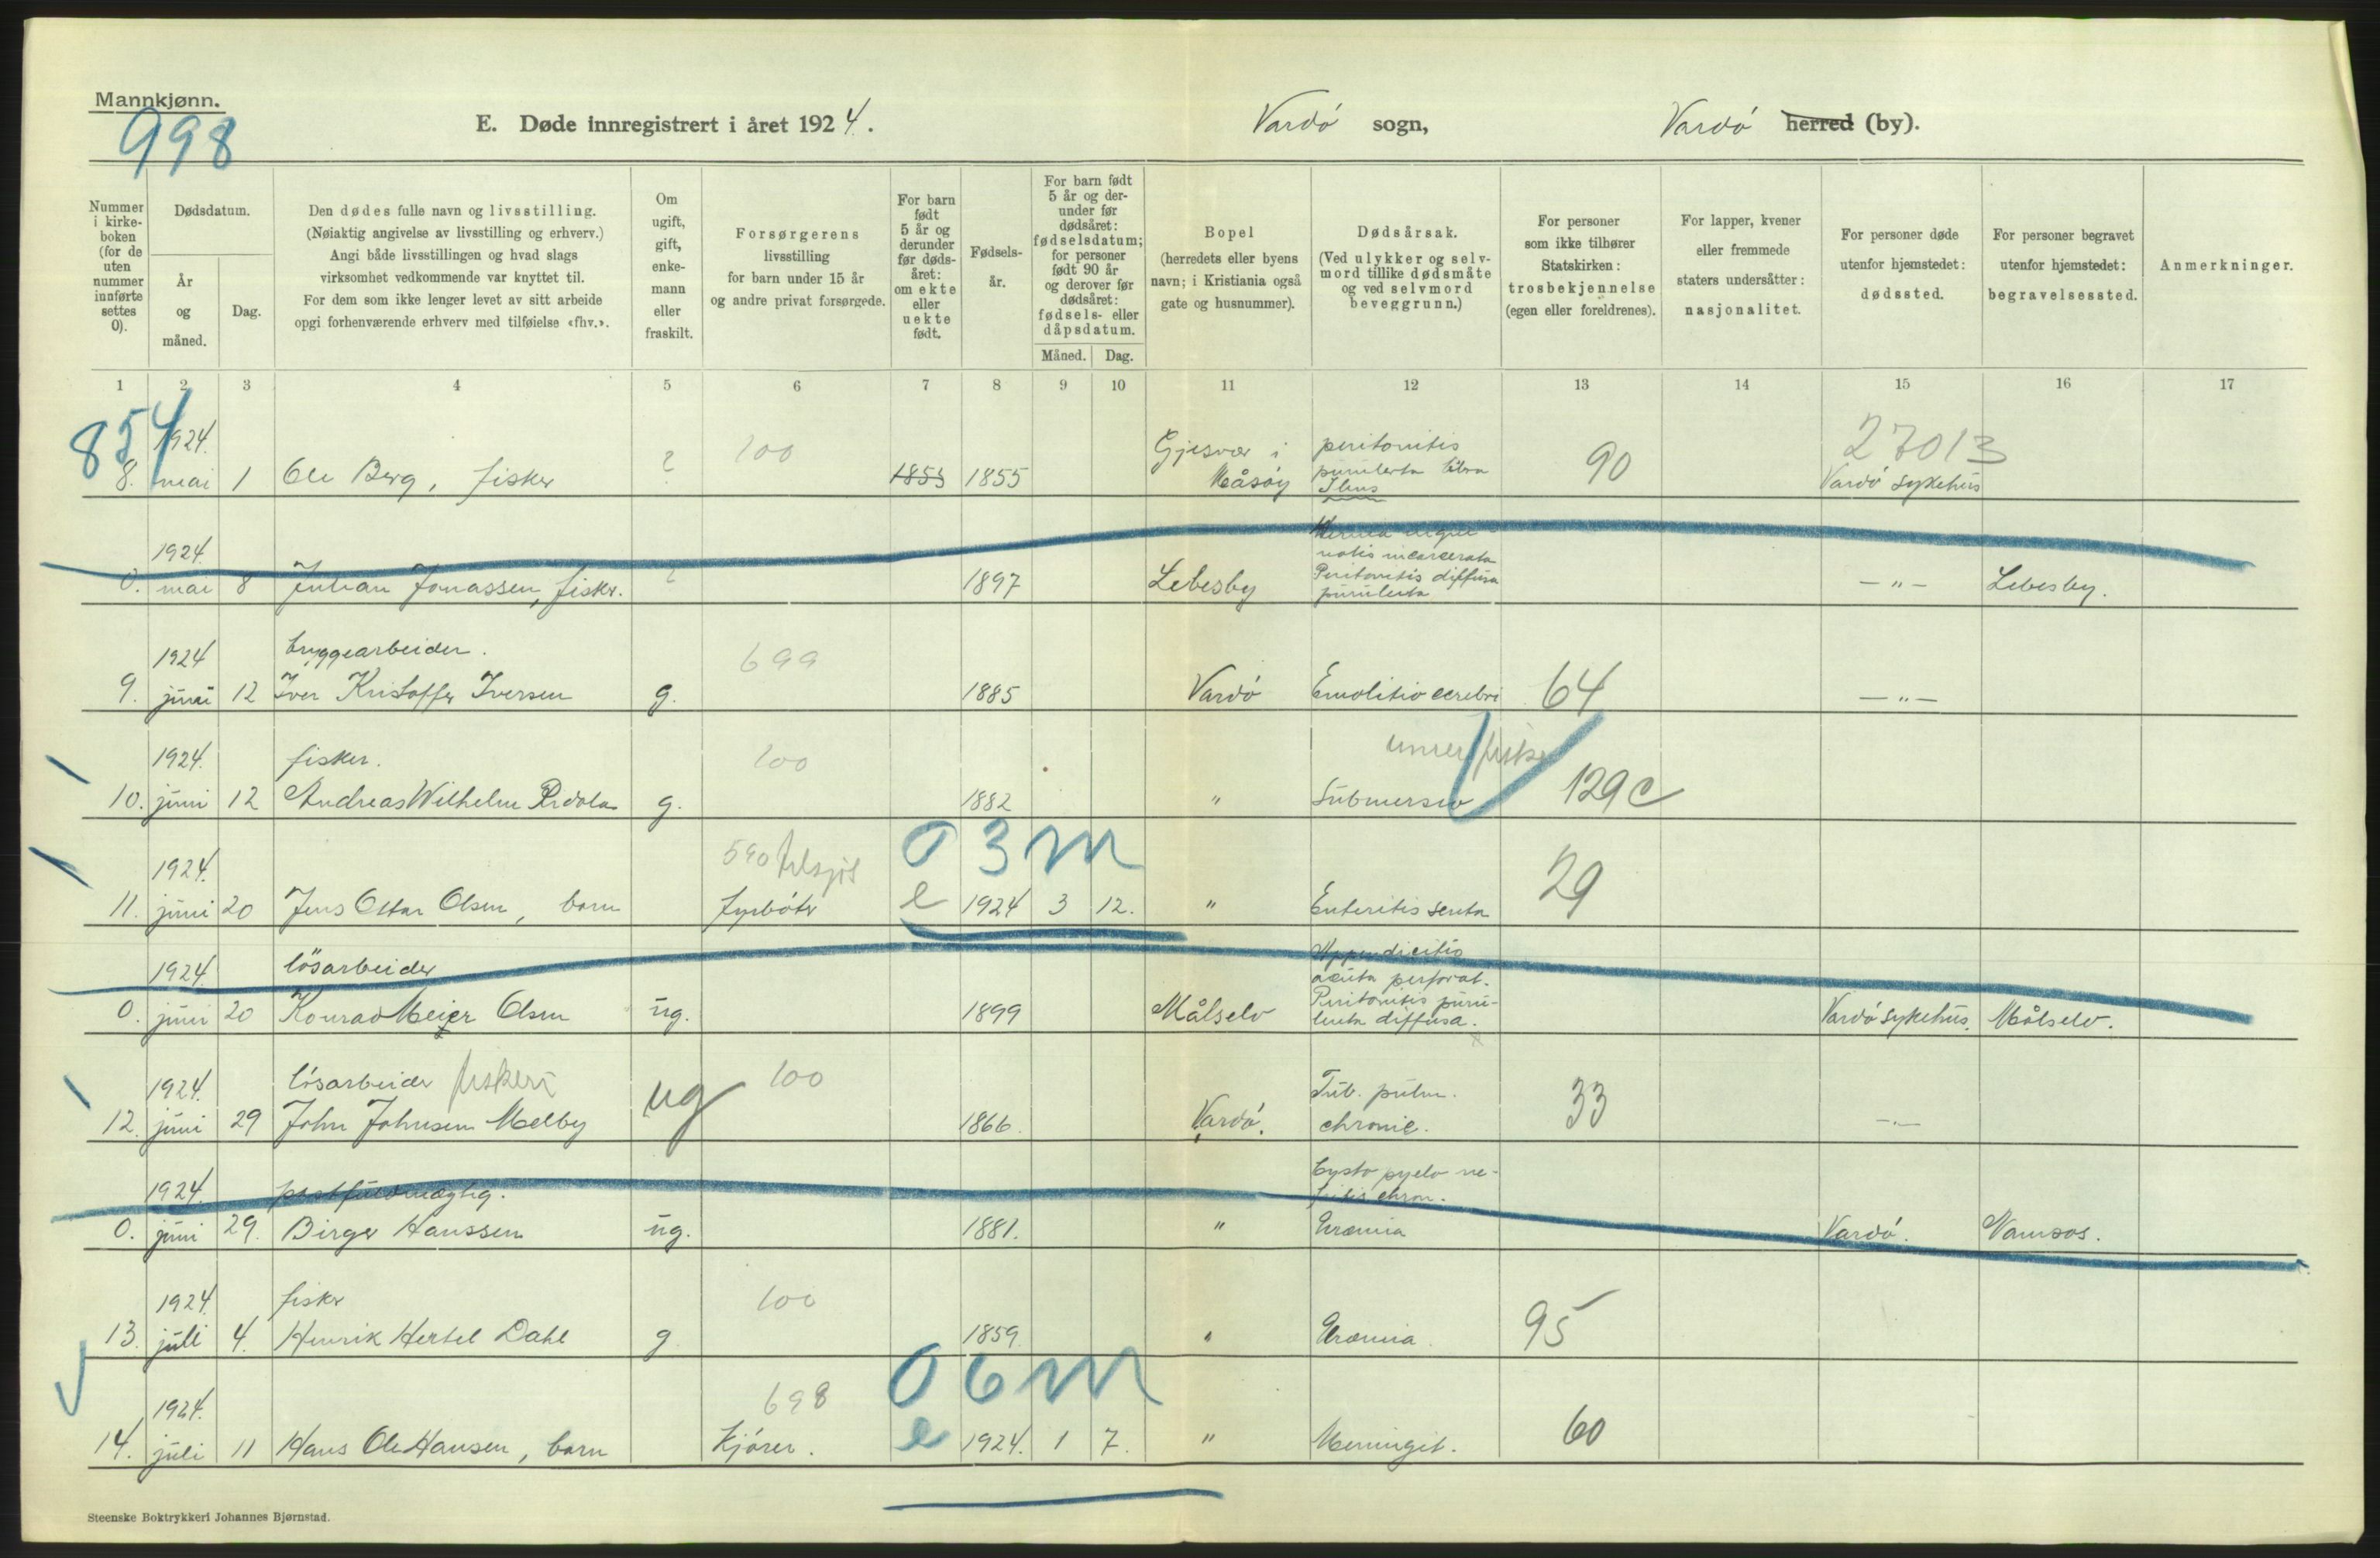 Mannkjønn.
998
E. Døde innregistrert i året 1924.
Vardó sogn,
Vardó herred (by).
Nummer i kirke- boken (for de uten nummer innførte settes 0).
Dødsdatum.
År og måned.
Dag.
Den dødes fulle navn og livsstilling.
(Nøiaktig angivelse av livsstilling og erhverv.)
Angi både livsstillingen og hvad slags
virksomhet vedkommende var knyttet til.
For dem som ikke lenger levet av sitt arbeide
opgi forhenværende erhverv med tilføielse «fhv.».
Om ugift, gift, enke- mann eller fraskilt.
Forsørgerens
livsstilling
for barn under 15 år
og andre privat forsørgede.
For barn født 5 år og derunder før døds- året: om ekte eller uekte født.
Fødsels- år.
For barn født 5 år og der- under før dødsåret: fødselsdatum; for personer født 90 år og derover før dødsåret: fødsels- eller dåpsdatum.
Måned. Dag.
Bopel
(herredets eller byens
navn; i Kristiania også
gate og husnummer).
Dødsårsak.
(Ved ulykker og selv-
mord tillike dødsmåte
og ved selvmord
beveggrunn.)
For personer
som ikke tilhører
Statskirken:
trosbekjennelse
(egen eller foreldrenes).
For lapper, kvener
eller fremmede
staters undersåtter:
nasjonalitet.
For personer døde
utenfor hjemstedet:
dødssted.
For personer begravet
utenfor hjemstedet:
begravelsessted.
Anmerkninger.
1 2 3 4 5 6 7 8 9 10 11 12 13 14 15 16 17
854
1924. 100 Gjesvær i peritonitis 27013
8. mai 1 Ole Berg, fisker ? 1853 1855 Måsöy Ilius 90 Vardó sykehus
1924.
0. mai 8 Julian Jonassen, fisker. ? 1897 Lebesby Peritonitis diffusa purulenta — " — Lebesby.
1924 bryggearbeider. 699
9. juni 12 Iver Kristoffer Iversen g. 1885 Vardó Emolitio cerebri 64 — " —
1924. fisker. 100 under fiske
10. juni 12 Andreas Wilhelm g. 1882 " Submersio 129c
1924. 590 03m
11. juni 20 Jens Ottar Olsen, barn fyrböter e 1924 3 12. " Enteritis acuta 29
1924. lösarbeider Appendicitis
acuta perforat.
0. juni 20 Konrad Meier Olsen ug. 1899 Målselv Peritonitis puru-
lenta diffusa. Vardó sykehus. Målselv.
1924. lösarbeider fiskeri 100 Tub. pulm.
12. juni 29 John Johnsen Melby ug 1866. Vardó. chronic. 33 — " —
1924. postfuldmægtig. Cysto pyelo ne-
fritis chron.
0. juni 29. Birger Hanssen ug. 1881. " Uræmia Vardó. Namsos.
1924. fisker 100
13. juli 4. Henrik Hertel Dahl g 1859. " Uræmia. 95
1924. 698 06m
14. juli 11 Hans Ole Hansen, barn Kjörer. e 1924. 1 7. " Meningit. 60
Steenske Boktrykkeri Johannes Bjørnstad.